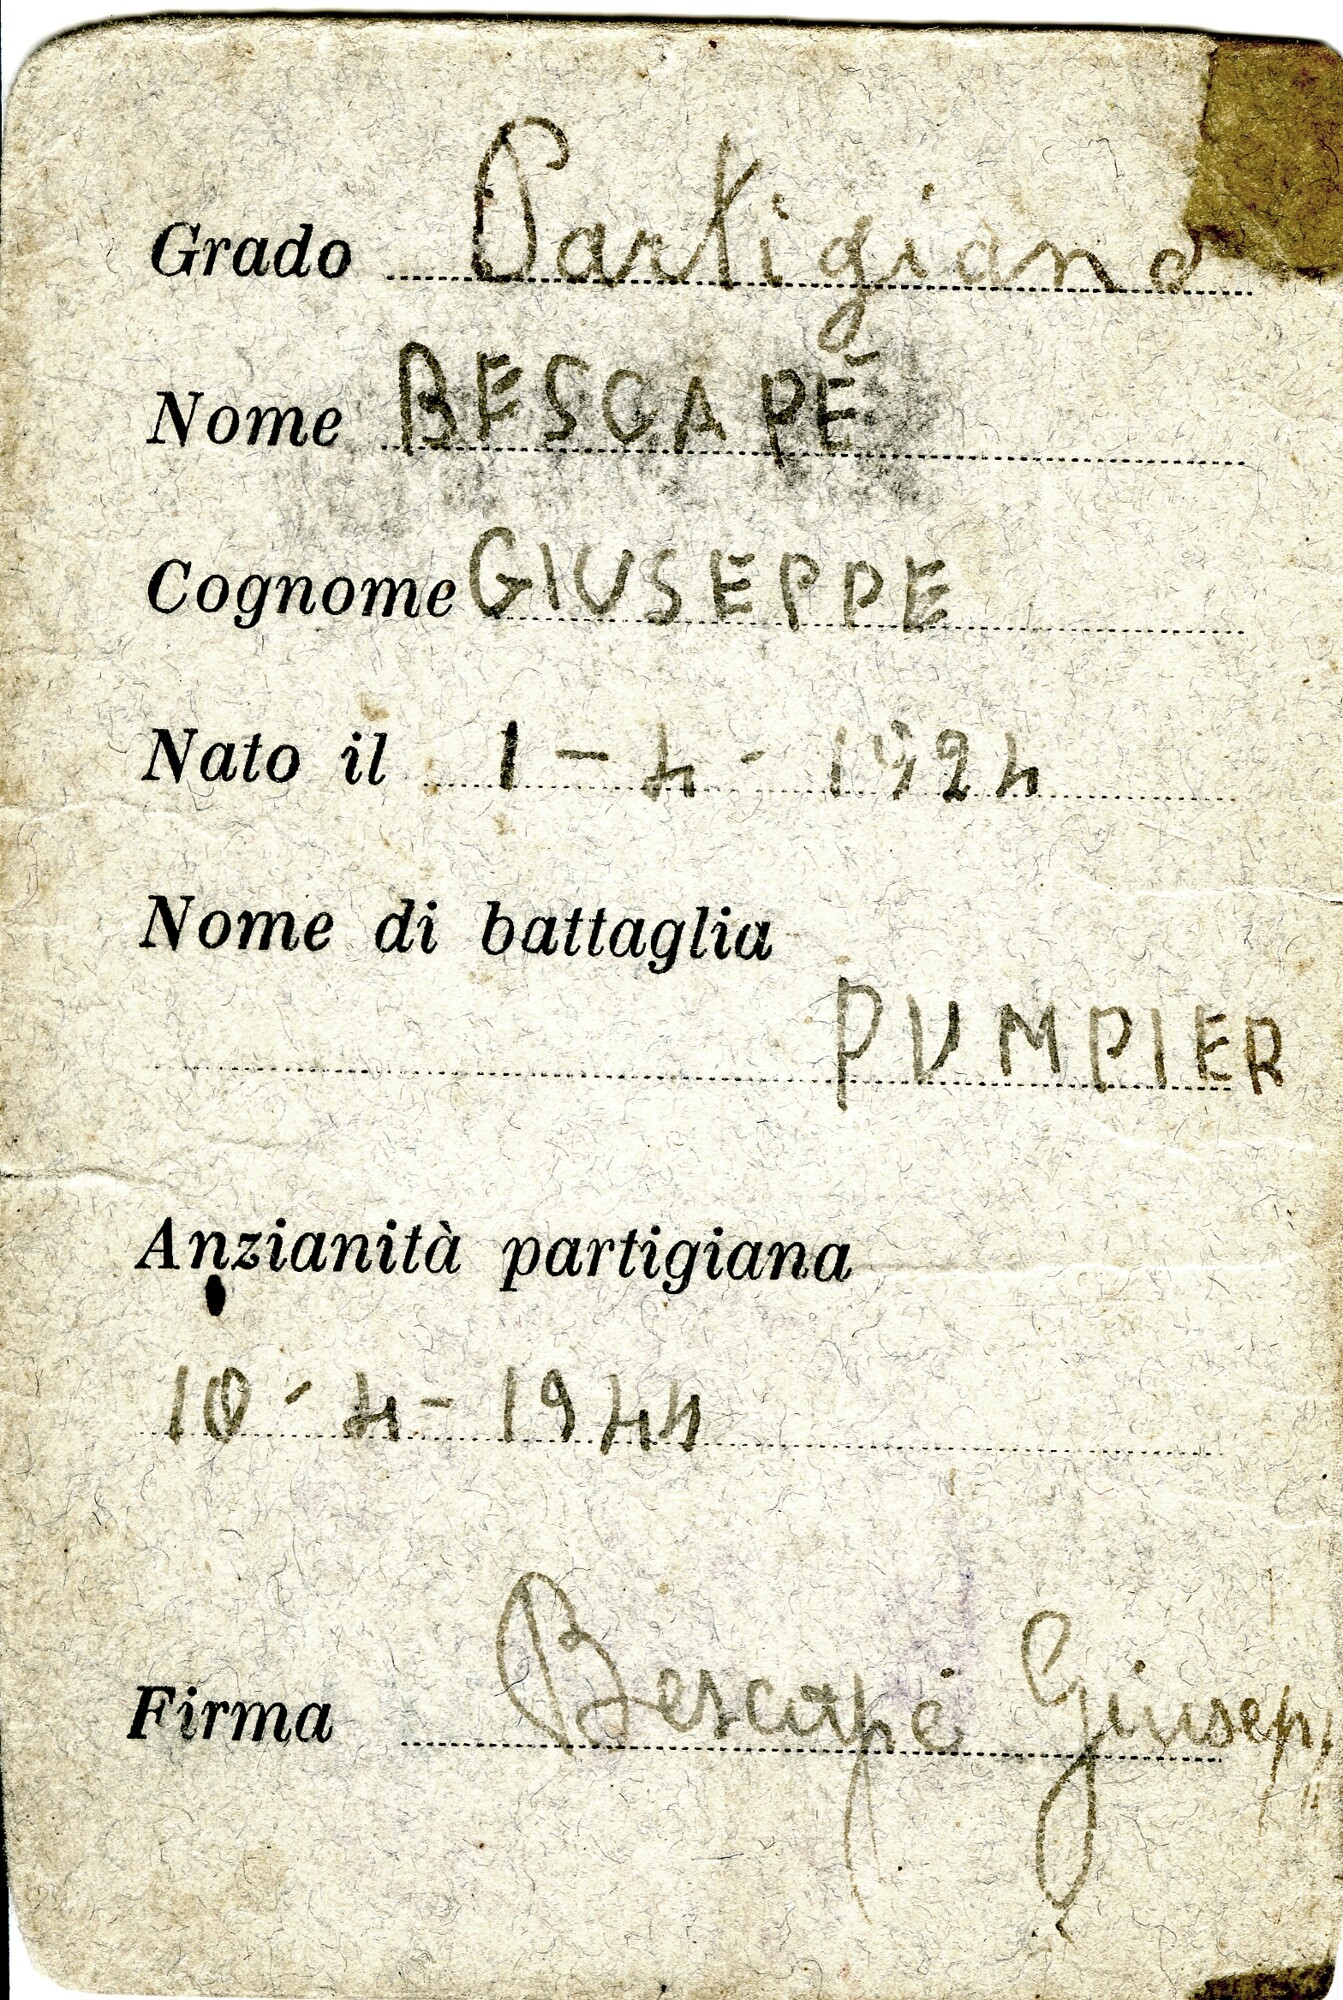 Grado Partigiano
Nome BESCAPÉ
Cognome GIUSEPPE
Nato il 1-4-1924
Nome di battaglia
PUMPIER
Anzianità partigiana
10-4-1944
Firma Bescapé Giusepp